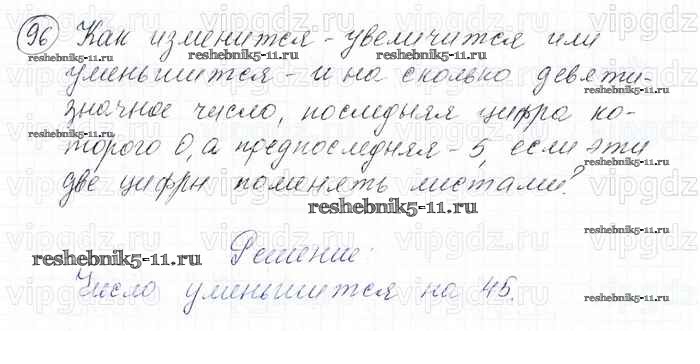 96 Как изменится - увеличится или
уменьшится - и на сколько девяти-
значное число, последняя цифра ко-
торого 0, а предпоследняя - 5, если эти
две цифры поменять местами?
Решение:
Число уменьшится на 45.
vipgdz
reshebnik5-11.ru